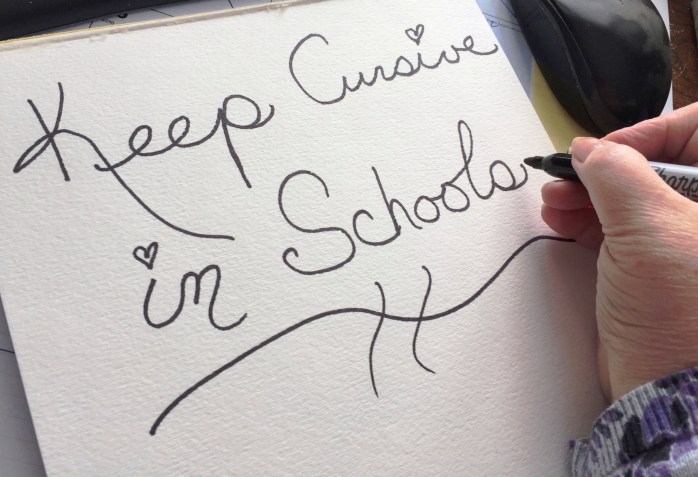 Keep Cursive
in Schools
Sharpie